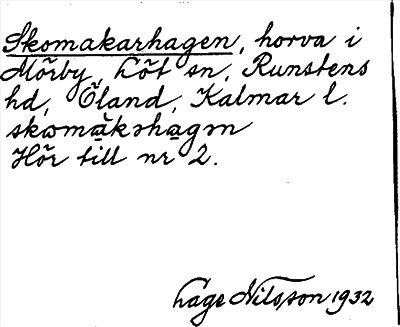 Skomakarhagen, horva i
Mörby, Löt sn, Runstens
hd, Öland, Kalmar l.
skωmàkəhagən
Hör till nr 2.
Lage Nilsson 1932